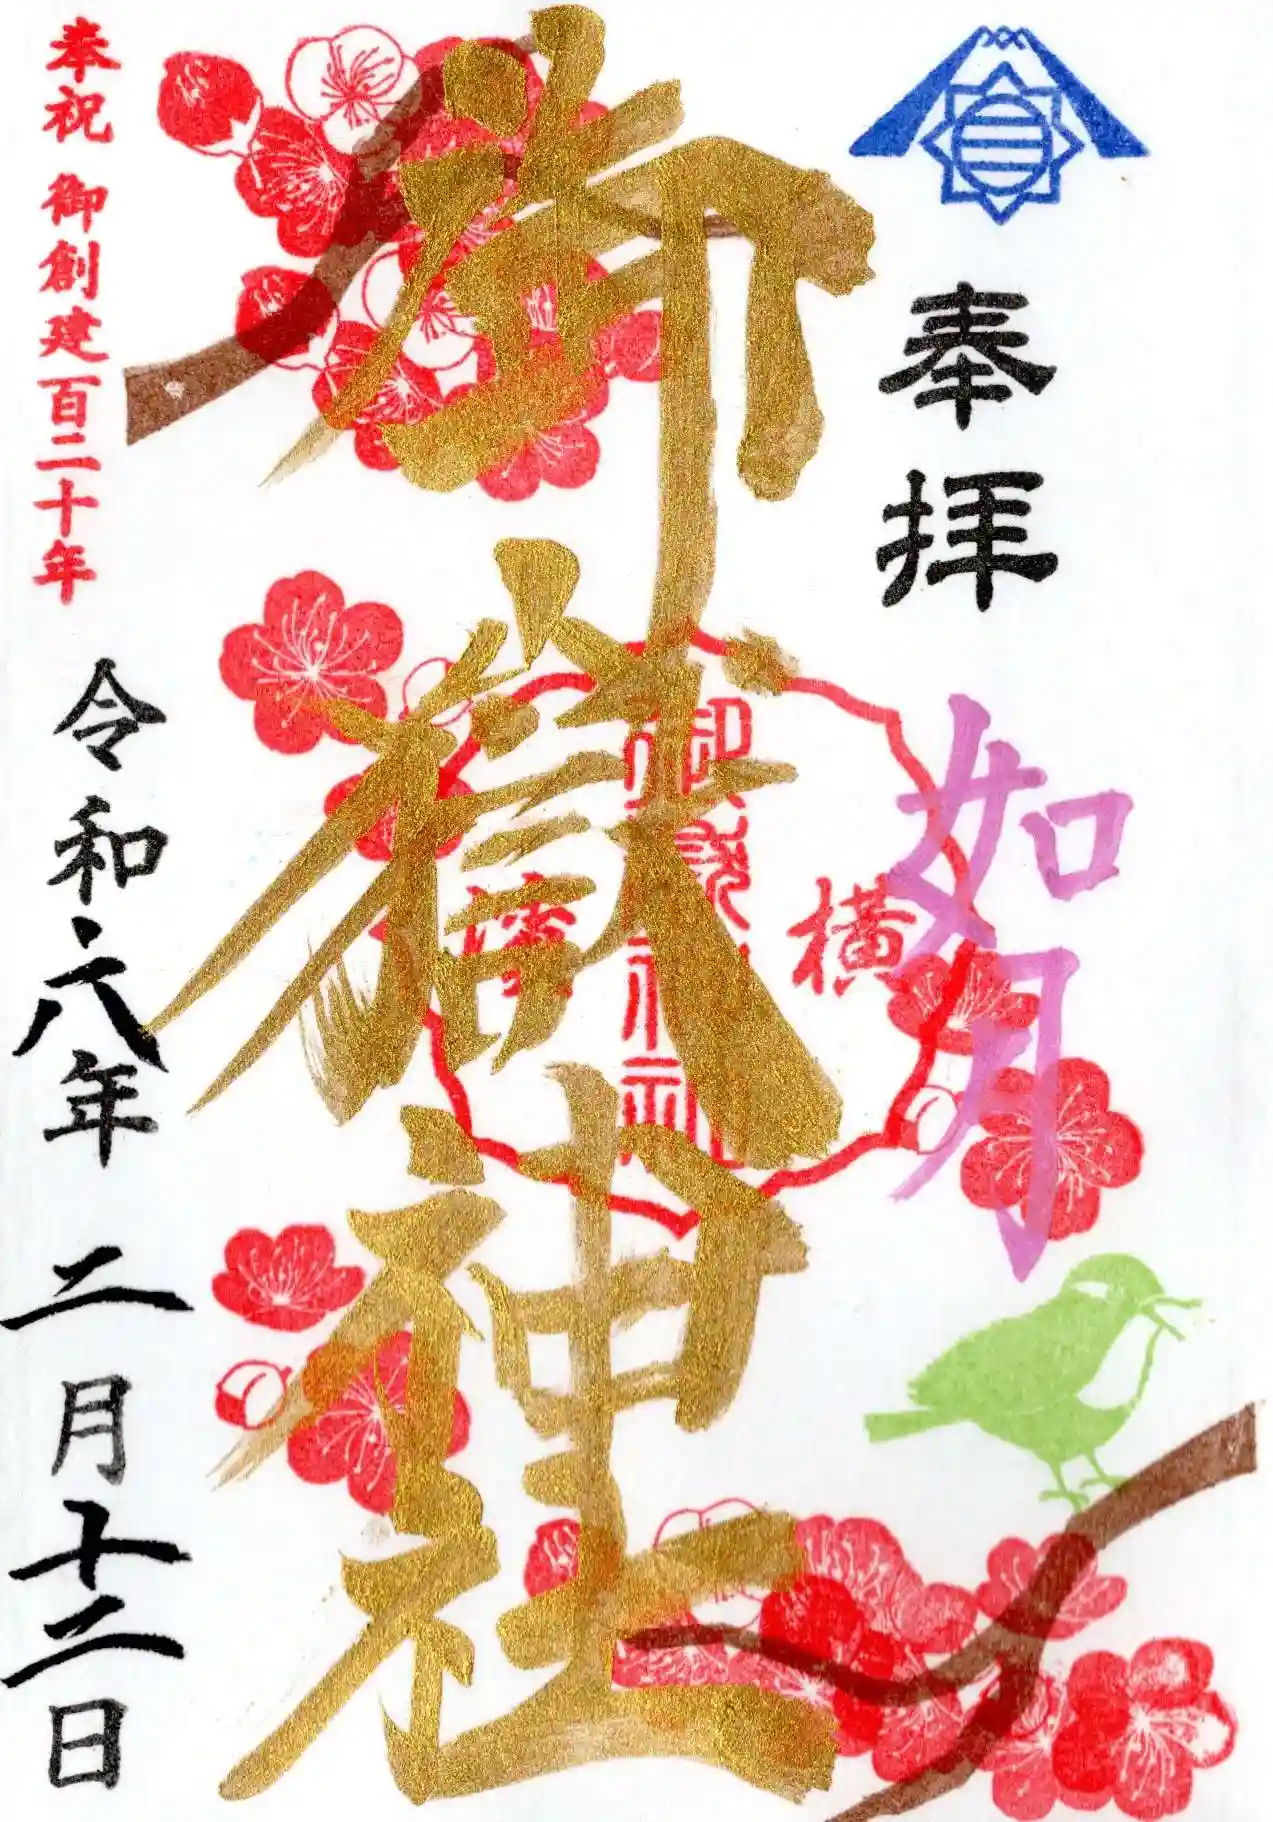 奉拝
如月
横
濱
御嶽神社
御嶽神社
奉祝 御創建百二十年
令和六年 二月十二日